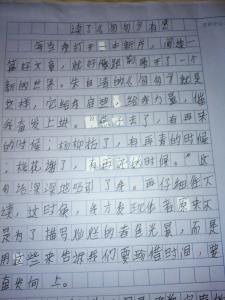 读了《匆匆》有感
每当我打开一本新书，阅读一
篇好文章，就好像踏到了一个
新的世界。朱自清的《匆匆》就是
这样，它给我启迪，给我力量，催
我奋发上进。“燕子去了，有再来
的时候；杨柳枯了，有再青的时候
，桃花谢了，有再开的时候。”这
句话深深地吸引了我。再仔细往下
读，这时候，我才发现作者原来不
是为了描写灿烂的春色光景，而是
用这些来告诉我们要珍惜时间，要
奋发向上。